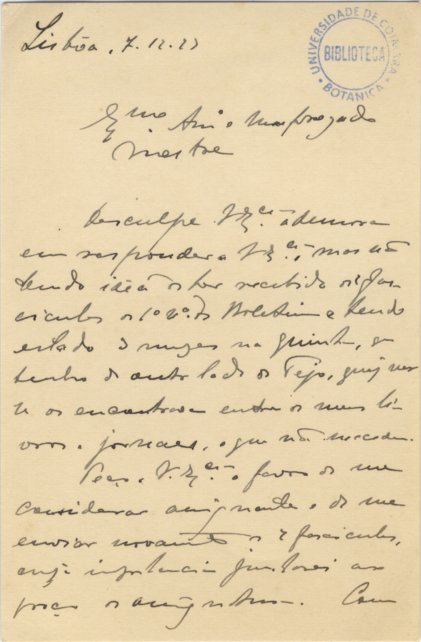 Lisbôa, 7.12.27
UNIVERSIDADE DE COIMBRA
BIBLIOTECA
BOTANICA
Exmo Am.o e
Mestre
Desculpe V. Exciª a demora
em responder a V. Exciª, mas não
tendo idéa de ter recebido os fas-
ciculos do 1º vº do Boletim e tendo
estado 3 mezes na Quinta, que
tenho do outro lado do Tejo, quiz ver
se os encontrava entre os meus li-
vros e jornaes, o que não succedeu.
Peço a V. Exciª o favor de me
considerar assignante e de me
enviar novamente os 2 fasciculos,
cuja importancia juntarei ao
preço da assignatura. Com